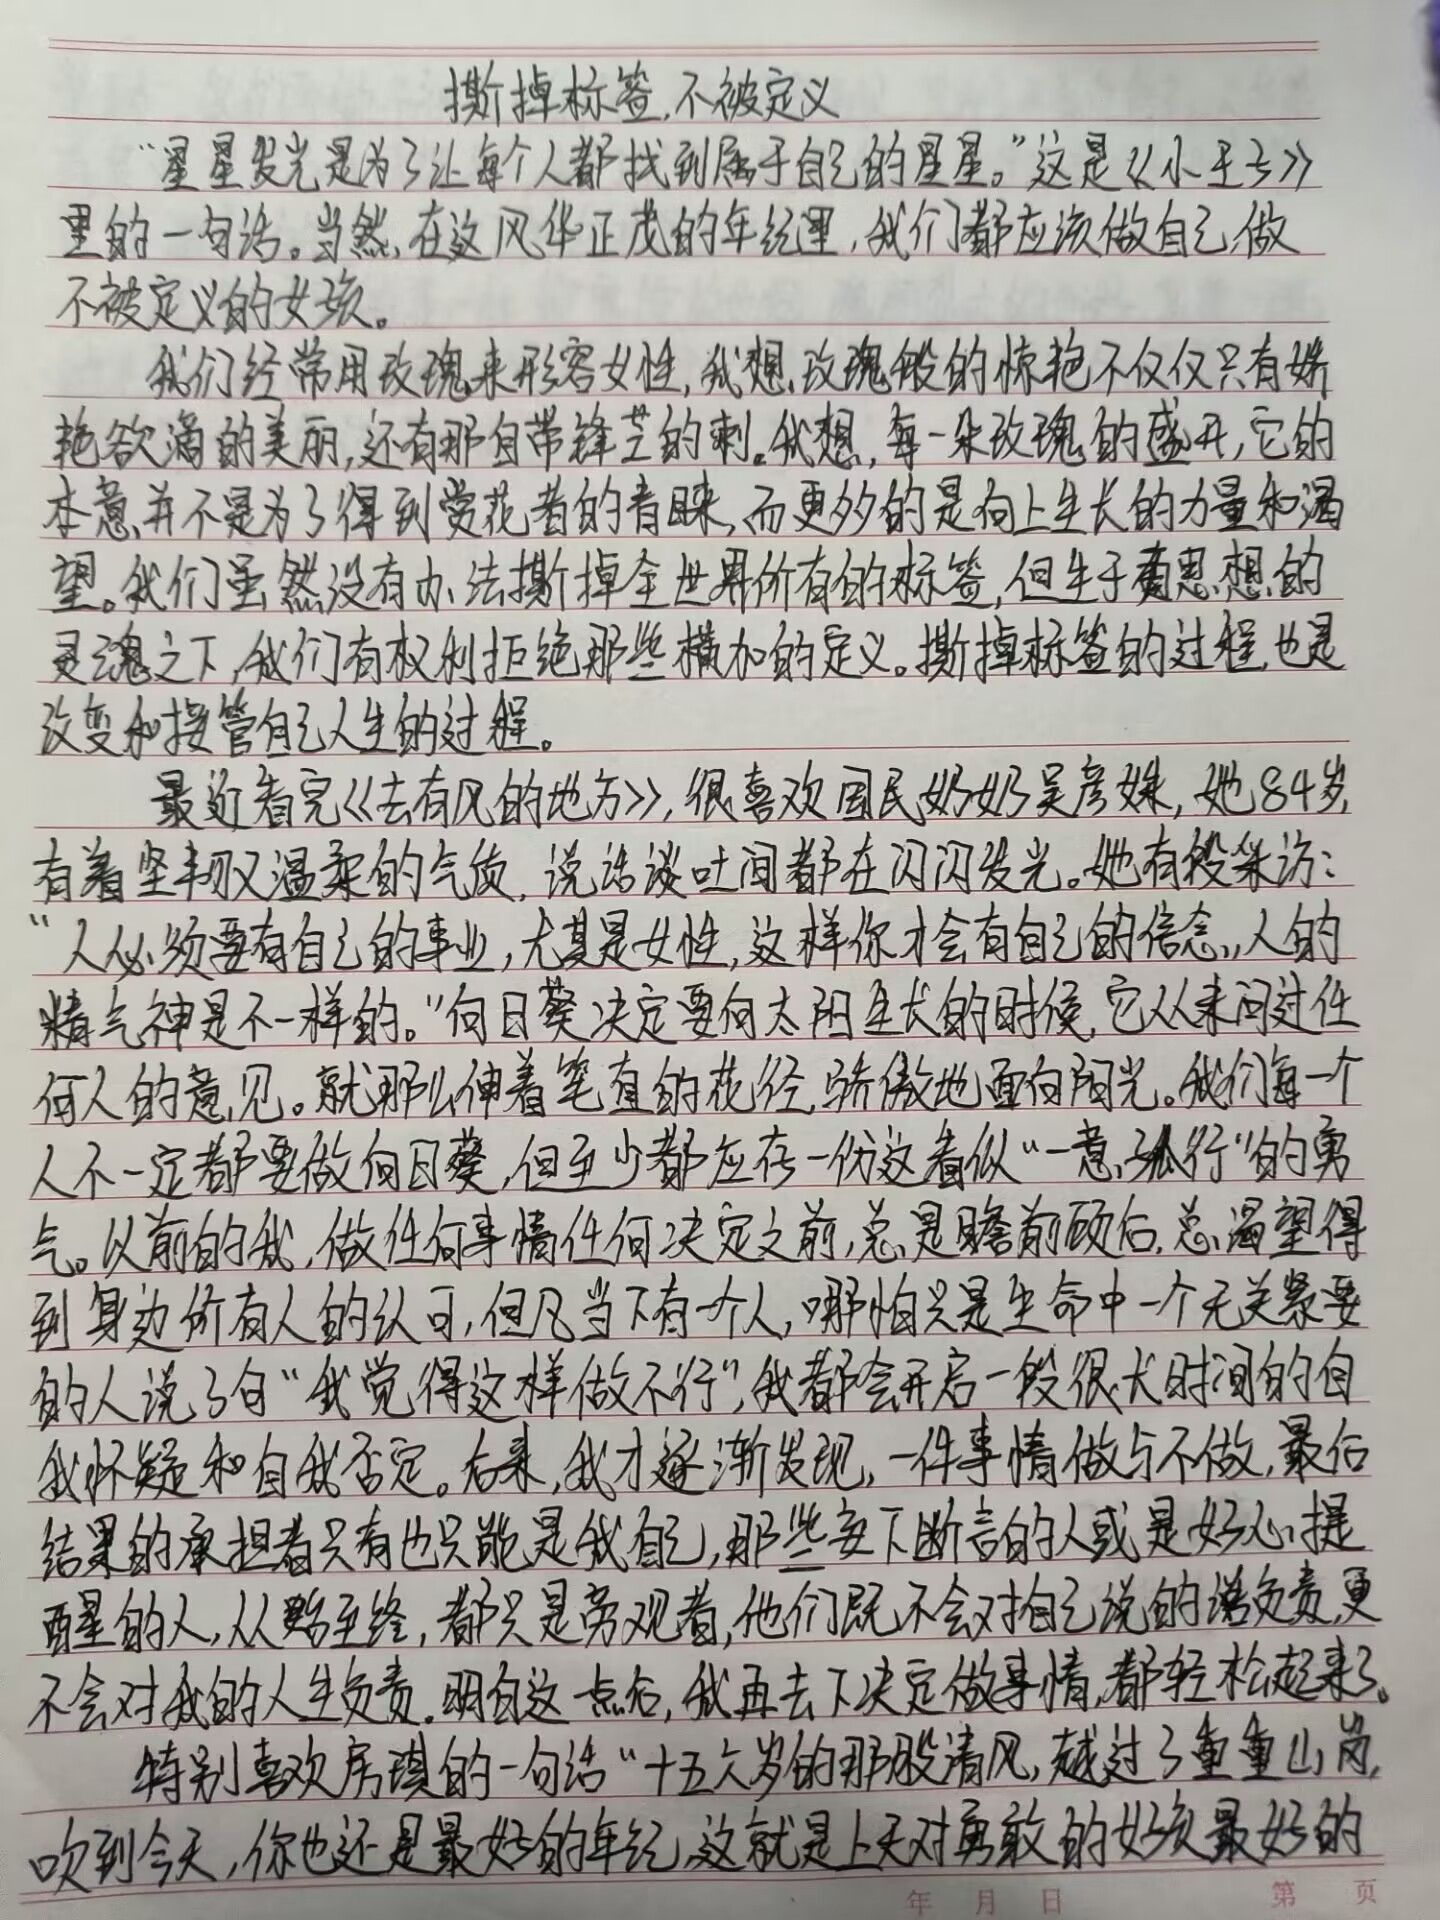 撕掉标签,不被定义
“星星发光是为了让每个人都找到属于自己的星星。”这是《小王子》
里的一句话。当然,在这风华正茂的年纪里,我们都应该做自己,做
不被定义的女孩。
我们经常用玫瑰来形容女性,我想,玫瑰般的惊艳不仅仅只有娇
艳欲滴的美丽,还有那自带锋芒的刺。我想,每一朵玫瑰的盛开,它的
本意并不是为了得到赏花者的青睐,而更多的是向上生长的力量和渴
望。我们虽然没有办法撕掉全世界所有的标签,但生于思想的
灵魂之下,我们有权利拒绝那些横加的定义。撕掉标签的过程,也是
改变和接管自己人生的过程。
最近看完《去有风的地方》,很喜欢国民奶奶吴彦姝,她84岁,
有着坚韧又温柔的气质,说话谈吐间都在闪闪发光。她有段采访:
“人必须要有自己的事业,尤其是女性,这样你才会有自己的信念,人的
精气神是不一样的。”向日葵决定要向太阳生长的时候,它从来问过任
何人的意见。就那么伸着笔直的花径,骄傲地面向阳光。我们每一个
人不一定都要做向日葵,但至少都应存一份这看似“一意孤行”的勇
气。以前的我,做任何事情任何决定之前,总是瞻前顾后,总渴望得
到身边所有人的认可,但凡当下有一个人,哪怕只是生命中一个无关紧要
的人说了句“我觉得这样做不行”,我都会开启一段很长时间的自
我怀疑和自我否定。后来,我才逐渐发现,一件事情做与不做,最后
结果的承担者只有也只能是我自己,那些妄下断言的人或是好心提
醒的人,从始至终,都只是旁观者,他们既不会对自己说的话负责,更
不会对我的人生负责。明白这一点后,我再去下决定做事情,都轻松起来了。
特别喜欢房琪的一句话“十五六岁的那股清风,越过了重重山岗,
吹到今天,你也还是最好的年纪,这就是上天对勇敢的女孩最好的
年 月 日 第 页